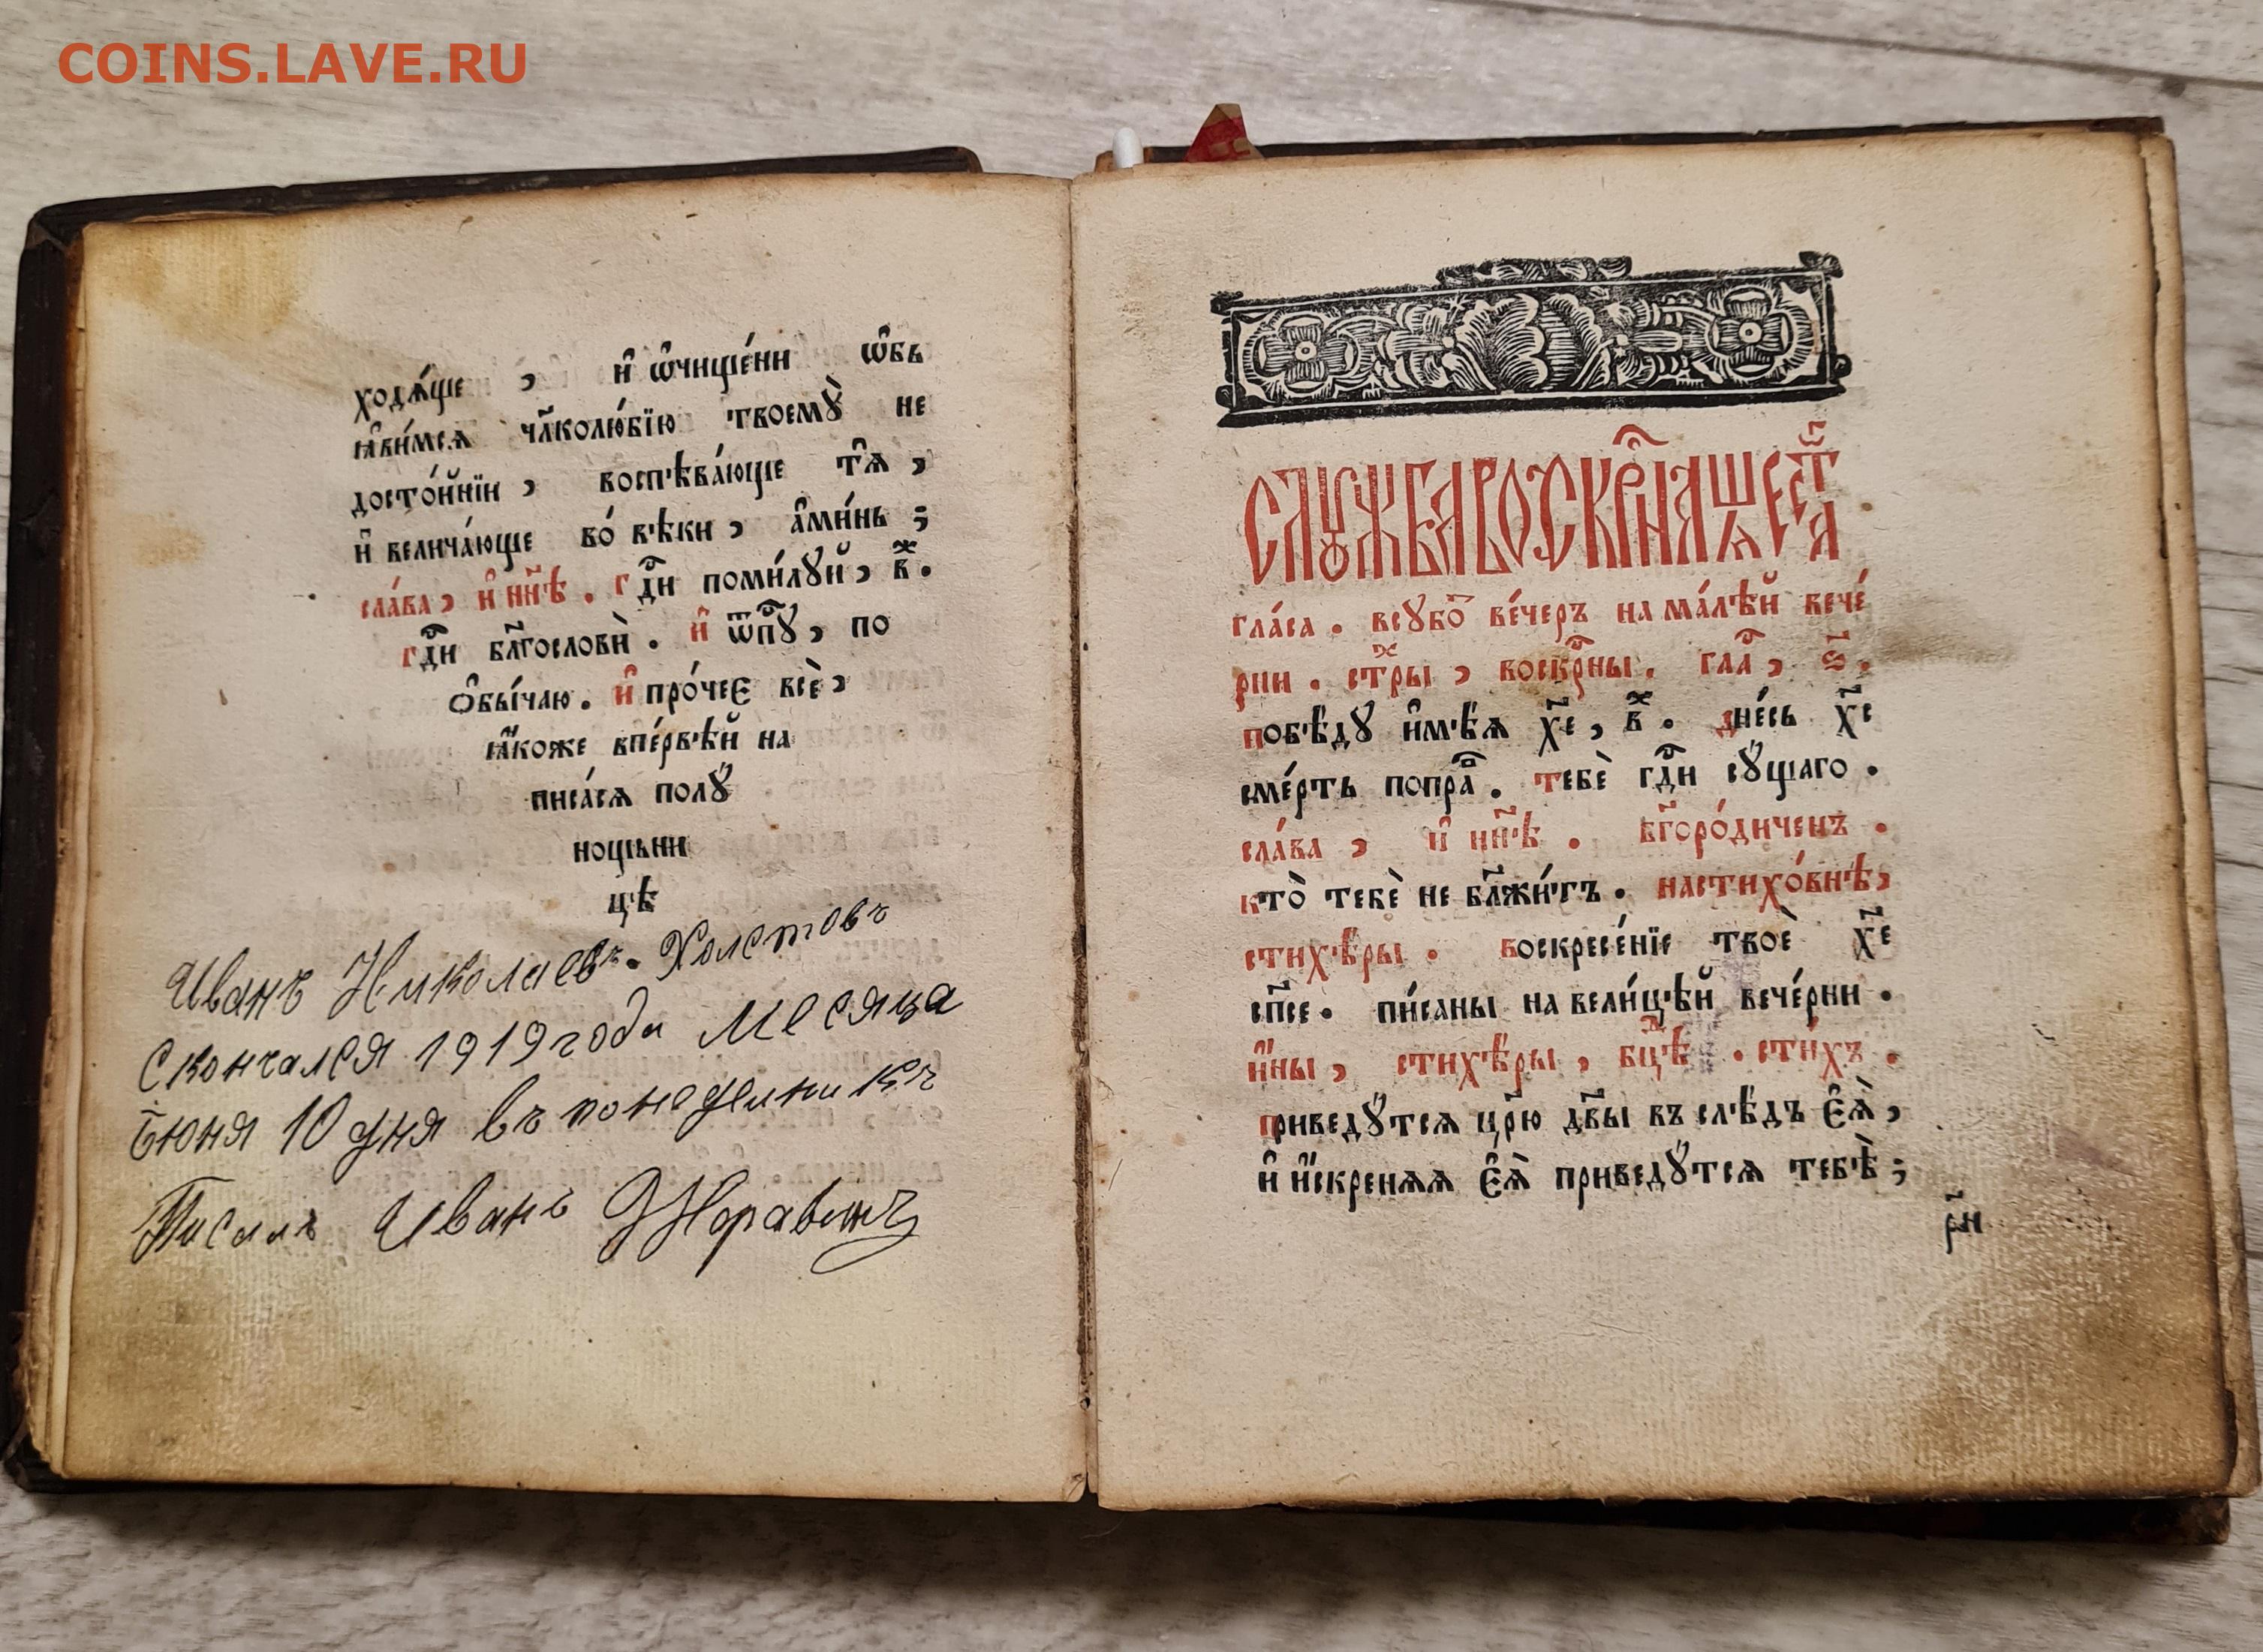 COINS.LAVE.RU
ходѧ́ще , и҆ ѡ҆чище́ни ѡ҆бь
ꙗ҆ви́мсѧ чл҃колю́бїю твоемꙋ̀ не
досто́йнїи , воспѣва́юще тѧ̑ ,
и҆ велича́юще во́ вѣки , а҆ми́нь ;
сла́ва , и҆ нн҃ѣ . гдⷭ҇и поми́лꙋй , в҃ж .
гдⷭ҇и бл҃гословѝ . и҆ ѿпⷭ҇ꙋ , по
ѻ҆бы́чаю . и҆ про́чеє всѐ ,
ꙗ҆́коже впе́рвѣй на
писа́сѧ полꙋ̀
нощьни
цѣ
Иванъ Николаевъ. Холстовъ
Скончался 1919 года месяца
Июня 10 дня въ понеделникъ
Писалъ Иванъ Журавинъ
слꙋжба воскрⷭ҇на шестаⷢ҇
гла́са . всꙋбоⷮ ве́черъ на ма́лѣй вече́
рни . стⷯры , воскрⷭ҇ны . глаⷭ҇ , ѕ҃ .
побѣ́дꙋ и҆мѣ́ѧ хе҃ , в҃ж . дне́сь хе҃
сме́рть попраⷡ҇ . тебѐ гдⷭ҇и сꙋ́щаго .
сла́ва , и҆ нн҃ѣ . бг҃оро́диченъ .
кто̀ тебѐ не бл҃жи́тъ . на стихо́внѣ ,
стихѣ́ры . воскресе́нїе твоѐ хе҃
сп҃се . пи́саны на вели́цѣй вече́рни .
и҆́ны , стихѣ́ры , бц҃ѣ . сти́хъ .
приведꙋ́тсѧ цр҃ю дв҃ы въ слѣ́дъ є҆ѧ̀ ,
и҆ и҆́скренѧѧ є҆ѧ̀ приведꙋ́тсѧ тебѣ̀ ;
рн҃